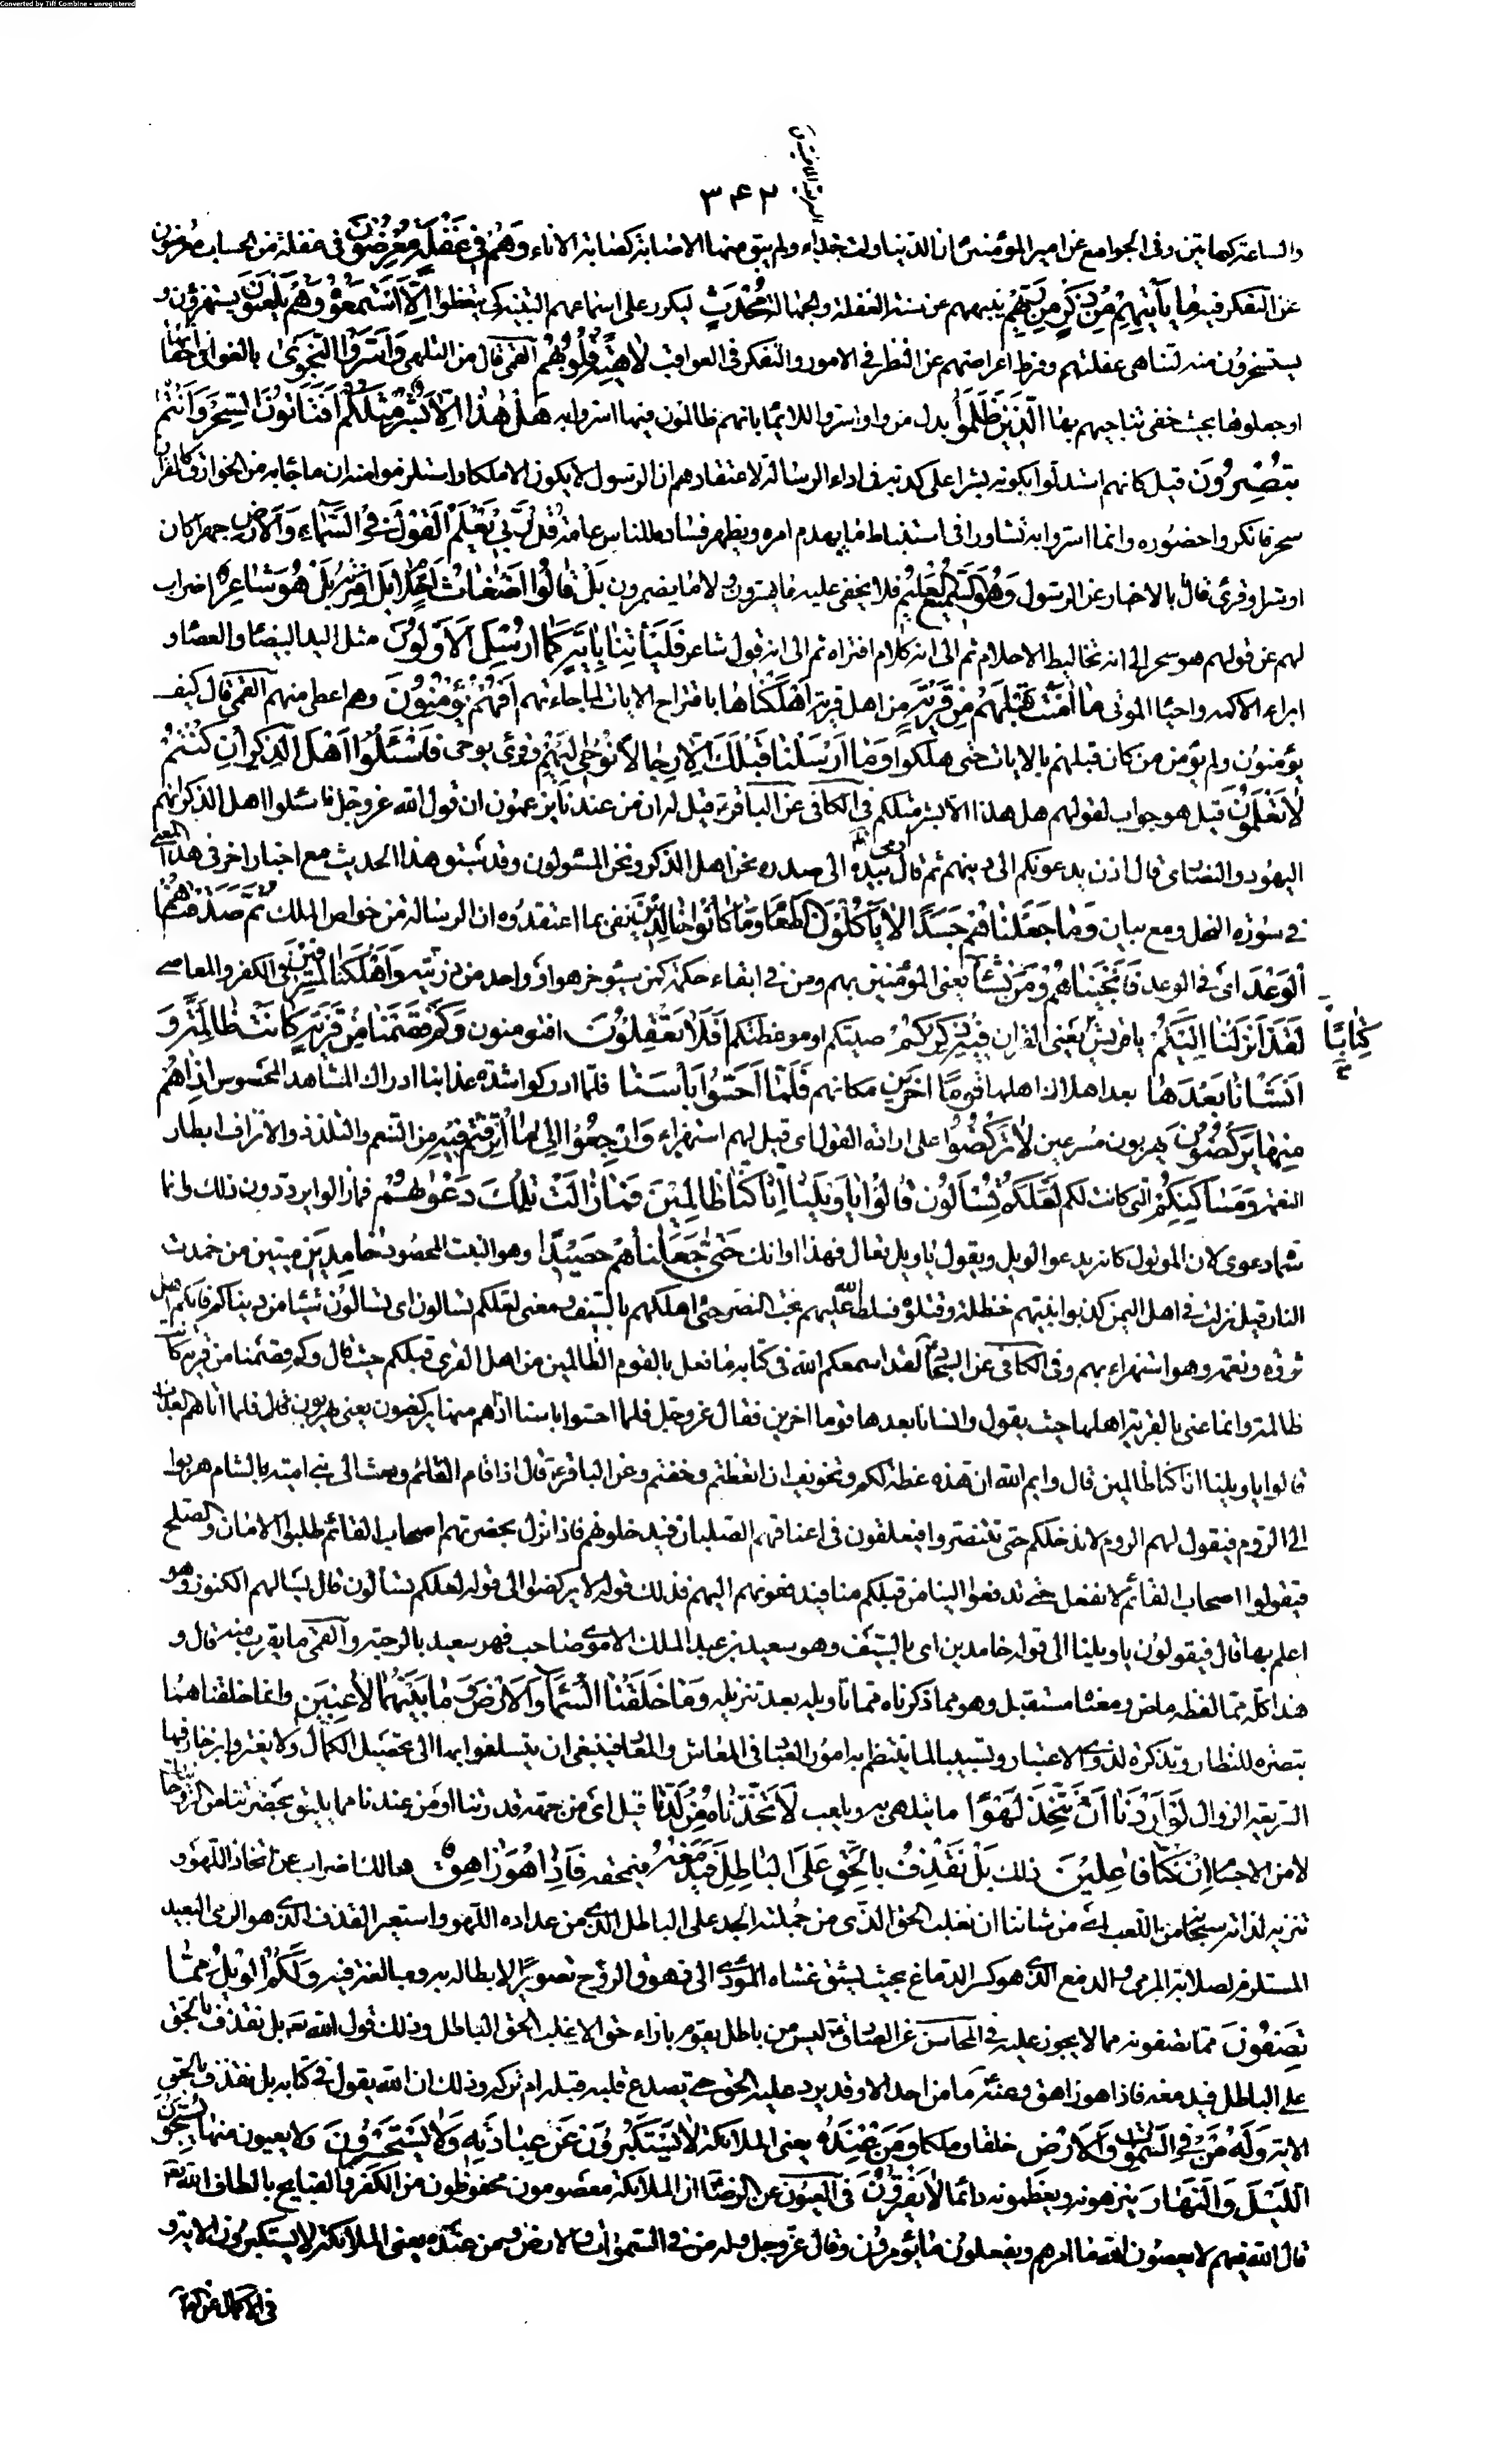 Converted by Tiff Combine - unregistered
٣٤٢
والساعة كهاتين وفى الجوامع عن امير المؤمنين ان الدنيا ولت حذاء ولم يبق منها الا صبابة كصبابة الاناء وَهُمْ فِي غَفْلَةٍ مُعْرِضُونَ فى غفلة من الحساب معرضون
عن التفكر فيه مَا يَأْتِيهِمْ مِنْ ذِكْرٍ مِنْ رَبِّهِمْ ينبههم عن سنة الغفلة والجهالة مُحْدَثٍ ليكرر على اسماعهم التنبيه كى يتعظوا إِلَّا اسْتَمَعُوهُ وَهُمْ يَلْعَبُونَ يستهزؤن و
يستسخرون منه لتناهى غفلتهم وفرط اعراضهم عن النظر فى الامور والتفكر فى العواقب لَاهِيَةً قُلُوبُهُمْ القمى قال من التلهى وَأَسَرُّوا النَّجْوَى بالغوا فى اخفائها
او جعلوها بحيث خفى تناجيهم بها الَّذِينَ ظَلَمُوا بدل من واو واسروا للايماء بانهم ظالمون فيما اسروا به هَلْ هَذَا إِلَّا بَشَرٌ مِثْلُكُمْ أَفَتَأْتُونَ السِّحْرَ وَأَنْتُمْ
تُبْصِرُونَ قيل كانهم استدلوا بكونه بشرا على كذبه فى ادعاء الرسالة لاعتقادهم ان الرسول لا يكون الا ملكا واستلزموا منه ان ما جاء به من الخوارق كالقرآن
سحر فانكروا حضوره وانما اسروا به تشاورا فى استنباط ما يهدم امره ويظهر فساده للناس عامة قُلْ رَبِّي يَعْلَمُ الْقَوْلَ فِي السَّمَاءِ وَالْأَرْضِ جهرا كان
او سرا وقرئ قال بالاخبار عن الرسول وَهُوَ السَّمِيعُ الْعَلِيمُ فلا يخفى عليه ما يسرون ولا ما يضمرون بَلْ قَالُوا أَضْغَاثُ أَحْلَامٍ بَلِ افْتَرَاهُ بَلْ هُوَ شَاعِرٌ اضراب
لهم عن قولهم هو سحر الى انه تخاليط الاحلام ثم الى انه كلام افتراه ثم الى انه قول شاعر فَلْيَأْتِنَا بِآيَةٍ كَمَا أُرْسِلَ الْأَوَّلُونَ مثل اليد البيضاء والعصا و
ابراء الاكمه واحياء الموتى مَا آمَنَتْ قَبْلَهُمْ مِنْ قَرْيَةٍ من اهل قرية أَهْلَكْنَاهَا باقتراح الايات لما جاءتهم أَفَهُمْ يُؤْمِنُونَ وهم اعطى منهم القمى قال كيف
يؤمنون ولم يؤمن من كان قبلهم بالايات حتى هلكوا وَمَا أَرْسَلْنَا قَبْلَكَ إِلَّا رِجَالًا نُوحِي إِلَيْهِمْ وقرئ يوحى فَاسْأَلُوا أَهْلَ الذِّكْرِ إِنْ كُنْتُمْ
لَا تَعْلَمُونَ قيل هو جواب لقولهم هل هذا الا بشر مثلكم فى الكافى عن الباقر قيل له ان من عندنا يزعمون ان قول الله عز وجل فاسئلوا اهل الذكر انهم
اليهود والنصارى قال اذن يدعونكم الى دينهم ثم قال اومى بيده الى صدره نحن اهل الذكر ونحن المسئولون وقد سبق هذا الحديث مع اخبار اخر فى هذا المعنى
فى سورة النحل ومع بيان وَمَا جَعَلْنَاهُمْ جَسَدًا لَا يَأْكُلُونَ الطَّعَامَ وَمَا كَانُوا خَالِدِينَ نفى لما اعتقدوه ان الرسالة من خواص الملك ثُمَّ صَدَقْنَاهُمُ
الْوَعْدَ اى فى الوعد فَأَنْجَيْنَاهُمْ وَمَنْ نَشَاءُ يعنى المؤمنين بهم ومن فى ابقاءه حكمة كمن سيؤمن هو او واحد من ذريته وَأَهْلَكْنَا الْمُسْرِفِينَ فى الكفر والمعاصى
لَقَدْ أَنْزَلْنَا إِلَيْكُمْ يا قريش كِتَابًا يعنى القرآن فِيهِ ذِكْرُكُمْ صيتكم او موعظتكم أَفَلَا تَعْقِلُونَ افتؤمنون وَكَمْ قَصَمْنَا مِنْ قَرْيَةٍ كَانَتْ ظَالِمَةً وَ
أَنْشَأْنَا بَعْدَهَا بعد اهلاك اهلها قَوْمًا آخَرِينَ مكانهم فَلَمَّا أَحَسُّوا بَأْسَنَا فلما ادركوا شدة عذابنا ادراك المشاهد المحسوس إِذَا هُمْ
مِنْهَا يَرْكُضُونَ يهربون مسرعين لَا تَرْكُضُوا على ارادة القول اى قيل لهم استهزاء وَارْجِعُوا إِلَى مَا أُتْرِفْتُمْ فِيهِ من التنعم والتلذذ والاتراف ابطار
النعمة وَمَسَاكِنِكُمْ التى كانت لكم لَعَلَّكُمْ تُسْأَلُونَ قَالُوا يَا وَيْلَنَا إِنَّا كُنَّا ظَالِمِينَ فَمَا زَالَتْ تِلْكَ دَعْوَاهُمْ فما زالوا يرددون ذلك وانما
سماه دعوى لان المولول كانه يدعو الويل ويقول يا ويل تعال فهذا اوانك حَتَّى جَعَلْنَاهُمْ حَصِيدًا وهو النبت المحصود خَامِدِينَ ميتين من خمدت
النار قيل نزلت فى اهل اليمن كذبوا نبيهم حنظلة وقتلوه فسلط الله عليهم بخت النصر حتى اهلكهم بالسيف ومعنى لعلكم تسالون اى تسالون شيئا من دنياكم فانكم اهل
ثروة ونعمة وهو استهزاء بهم وفى الكافى عن السجاد لقد اسمعكم الله فى كتابه ما فعل بالقوم الظالمين من اهل القرى قبلكم حيث قال وكم قصمنا من قرية كانت
ظالمة وانما عنى بالقرية اهلها حيث يقول وانشانا بعدها قوما اخرين فقال عز وجل فلما احسوا باسنا اذا هم منها يركضون يعنى يهربون قال فلما اتاهم العذاب
قالوا يا ويلنا انا كنا ظالمين قال وايم الله ان هذه عظة لكم وتخويف ان اتعظتم وخفتم وعن الباقر قال اذا قام القائم وبعث الى بنى امية بالشام هربوا
الى الروم فيقول لهم الروم لا ندخلكم حتى تتنصروا فيعلقون فى اعناقهم الصلبان فيدخلونهم فاذا نزل بحضرتهم اصحاب القائم طلبوا الامان والصلح
فيقولوا اصحاب القائم لا نفعل حتى تدفعوا الينا من قبلكم منا فيدفعونهم اليهم فذلك قوله لا تركضوا الى قوله لعلكم تسألون قال يسألهم الكنوز وهو
اعلم بها قال فيقولون يا ويلنا الى قوله خامدين اى بالسيف وهو سعيد بن عبد الملك الاموى صاحب نهر سعيد بالرحبة والقمى ما يقرب منه قال و
هذا كله مما لفظه ماض ومعناه مستقبل وهو مما ذكرناه مما تاويله بعد تنزيله وَمَا خَلَقْنَا السَّمَاءَ وَالْأَرْضَ وَمَا بَيْنَهُمَا لَاعِبِينَ وانما خلقناهما
تبصرة للنظار وتذكرة لذوى الاعتبار وتسبيبا لما ينتظم به امور العباد فى المعاش والمعاد فينبغى ان يتسلقوا بها الى تحصيل الكمال ولا يغتروا بزخارفها
السريعة الزوال لَوْ أَرَدْنَا أَنْ نَتَّخِذَ لَهْوًا ما يتلهى به ويلعب لَاتَّخَذْنَاهُ مِنْ لَدُنَّا قيل اى من جهة قدرتنا او من عندنا مما يليق بحضرتنا من الروحانيات
لا من الاجسام إِنْ كُنَّا فَاعِلِينَ ذلك بَلْ نَقْذِفُ بِالْحَقِّ عَلَى الْبَاطِلِ فَيَدْمَغُهُ فيمحقه فَإِذَا هُوَ زَاهِقٌ هالك اضراب عن اتخاذ اللهو و
تنزيه لذاته سبحانه من اللعب اى من شاننا ان نغلب الحق الذى من جملته الجد على الباطل الذى من عداده اللهو واستعير القذف الذى هو الرمى البعيد
المستلزم لصلابة المرمى والدمغ الذى هو كسر الدماغ بحيث يشق غشاه المؤدى الى زهوق الروح تصويرا لابطاله به ومبالغة فيه وَلَكُمُ الْوَيْلُ مِمَّا
تَصِفُونَ مما تصفونه مما لا يجوز عليه فى المحاسن عن الصادق ليس من باطل يقوم بازاء حق الا غلب الحق الباطل وذلك قول الله تعالى بل نقذف بالحق
على الباطل فيدمغه فاذا هو زاهق وعنه ما من احد الا وقد يرد عليه الحق حتى يصدع قلبه قبله ام تركه وذلك ان الله يقول فى كتابه بل نقذف بالحق
الاية وَلَهُ مَنْ فِي السَّمَوَاتِ وَالْأَرْضِ خلقا وملكا وَمَنْ عِنْدَهُ يعنى الملائكة لَا يَسْتَكْبِرُونَ عَنْ عِبَادَتِهِ وَلَا يَسْتَحْسِرُونَ ولا يعيون منها يُسَبِّحُونَ
اللَّيْلَ وَالنَّهَارَ ينزهونه ويعظمونه دائما لَا يَفْتُرُونَ فى العيون عن الرضا ان الملائكة معصومون محفوظون من الكفر والقبايح بالطاف الله تعالى
قال الله فيهم لا يعصون الله ما امرهم ويفعلون ما يؤمرون وقال عز وجل وله من فى السموات والارض ومن عنده يعنى الملائكة لا يستكبرون الاية و
فى الاكمال عن